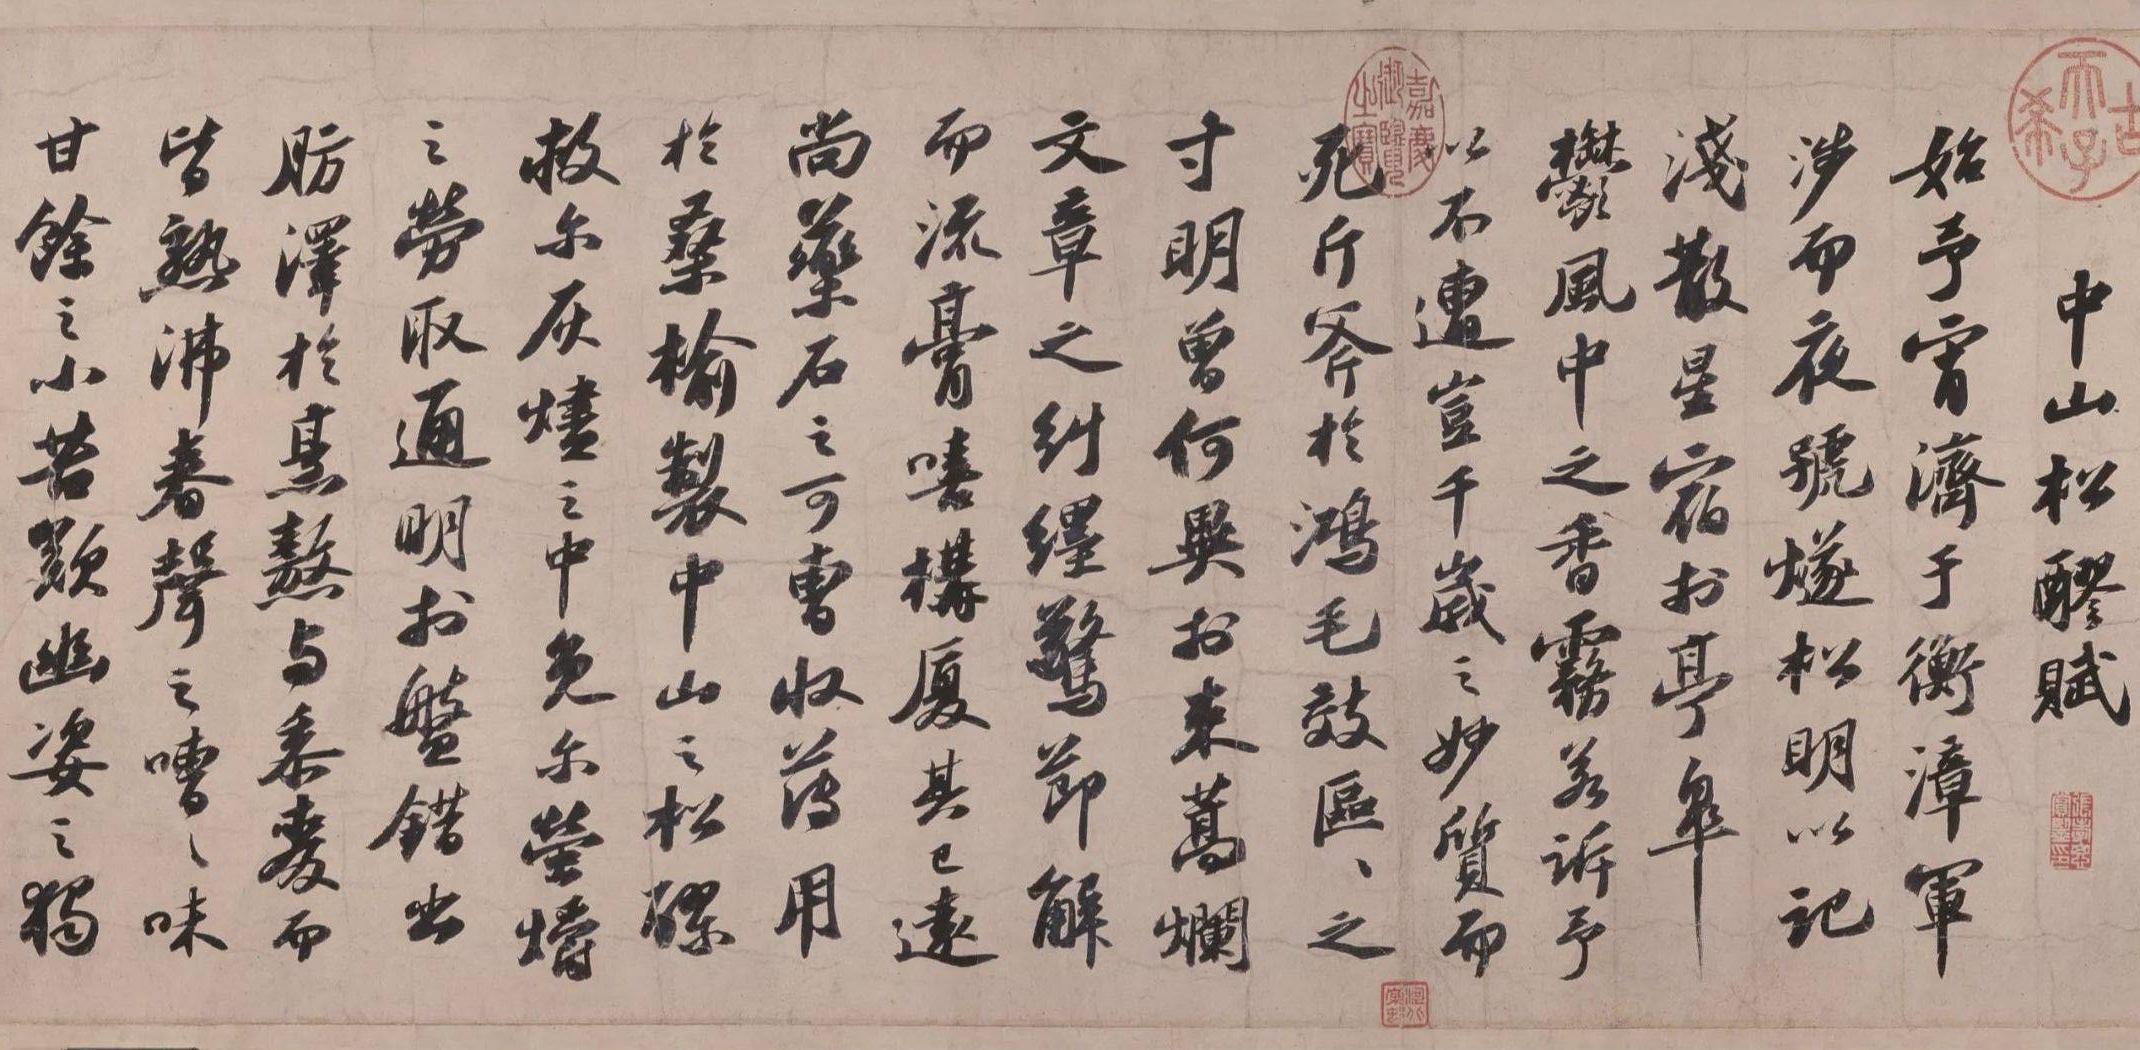 中山松醪賦
始予宵濟于衡漳軍
涉而夜號燧松明以記
淺散星宿於亭皋
鬱風中之香霧若訴予
以不遭豈千歲之妙質而
死斤斧於鴻毛效區々之
寸明曾何異於束蒿爛
文章之糾纆驚節解
而流膏嘻構厦其已遠
尚藥石之可曹收薄用
於桑榆製中山之松醪
救尔灰燼之中免尔螢爝
之勞取通明於盤錯出
肪澤於烹熬与黍麥而
皆熟沸舂聲之嘈々味
甘餘之小苦歎幽姿之獨
古希天子
嘉慶御覽之寶